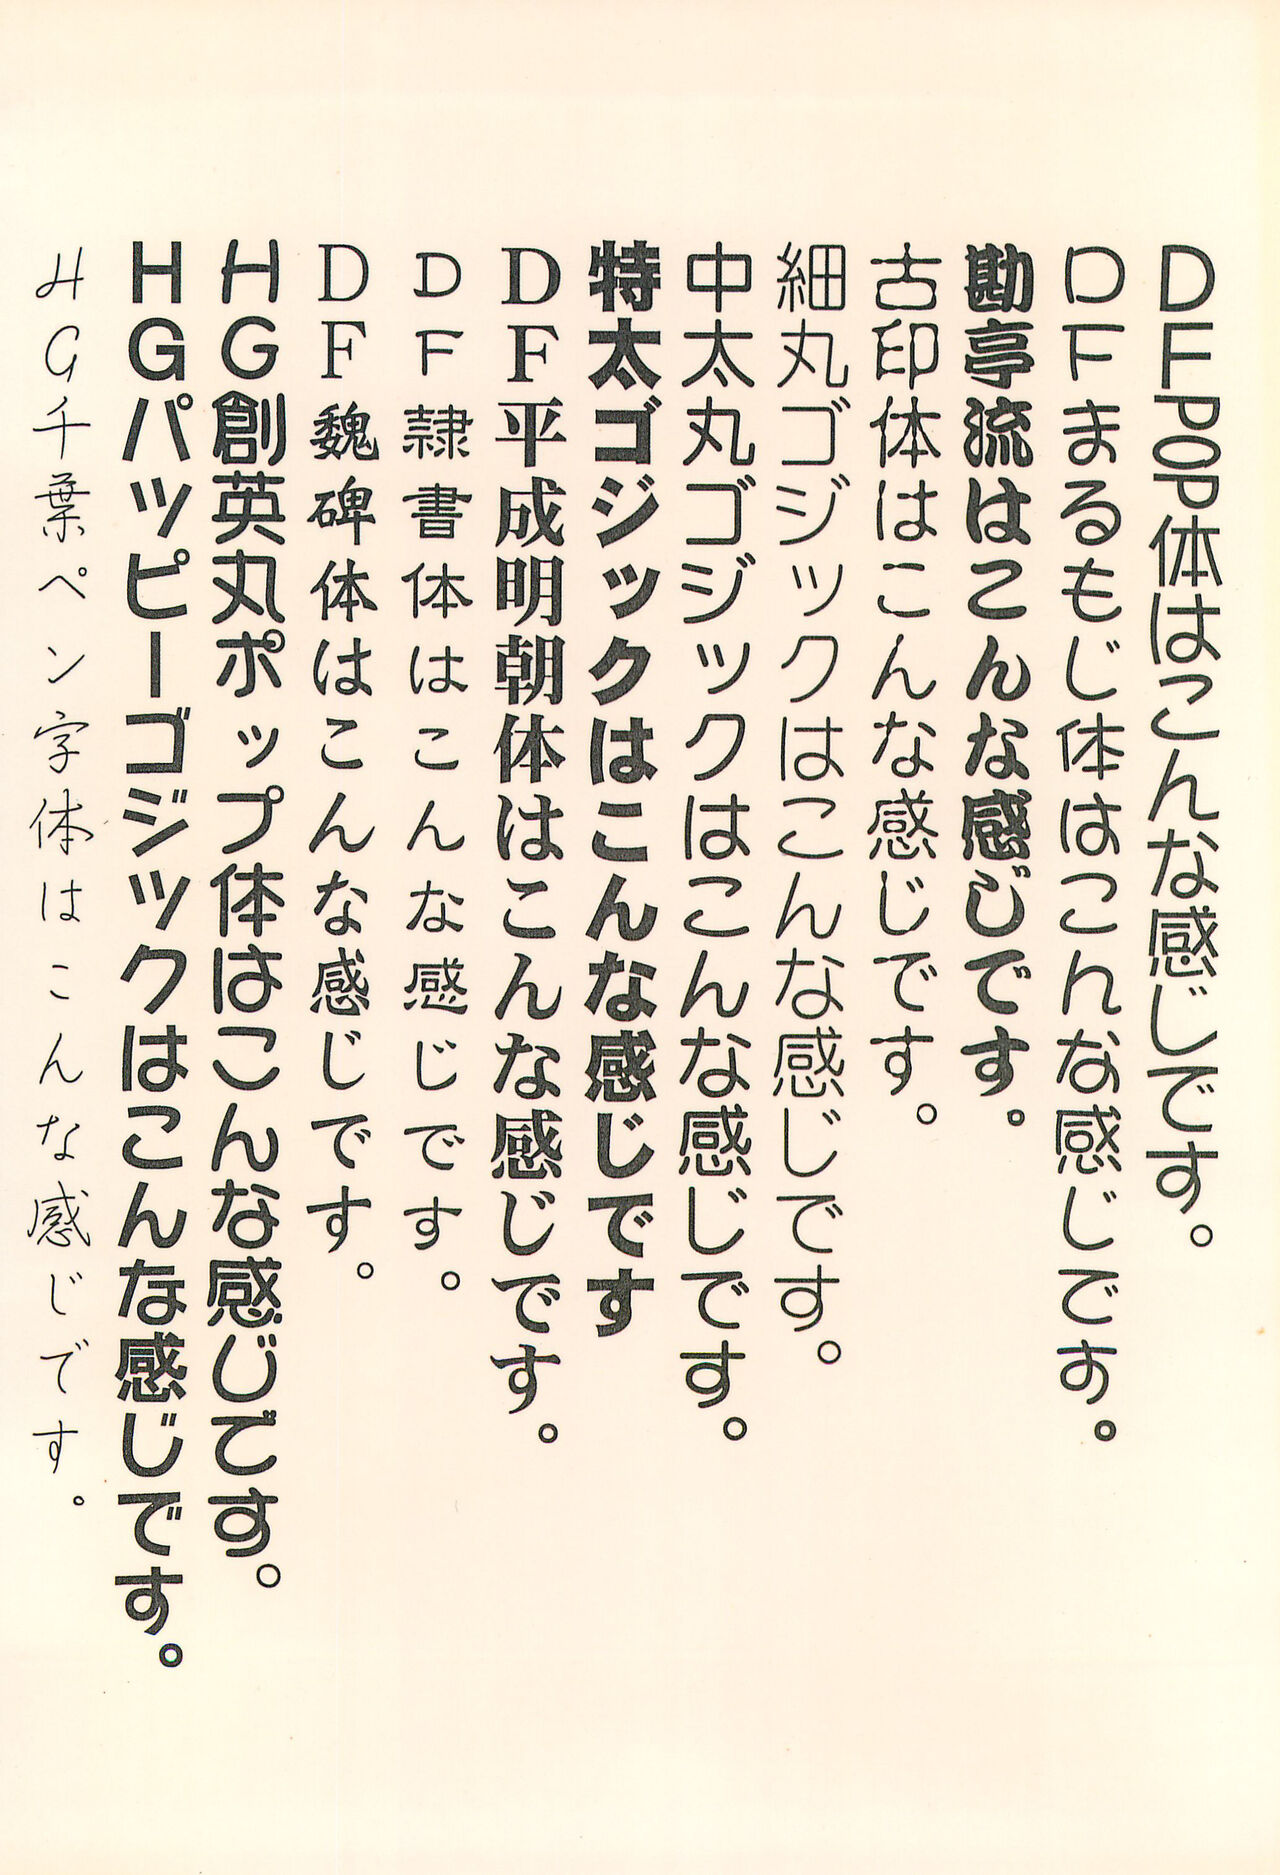 DFPOP体はこんな感じです。
DFまるもじ体はこんな感じです。
勘亭流はこんな感じです。
古印体はこんな感じです。
細丸ゴジックはこんな感じです。
中太丸ゴジックはこんな感じです。
特太ゴジックはこんな感じです
DF平成明朝体はこんな感じです。
DF隷書体はこんな感じです。
DF魏碑体はこんな感じです。
HG創英丸ポップ体はこんな感じです。
HGパッピーゴジックはこんな感じです。
HG千葉ペン字体はこんな感じです。